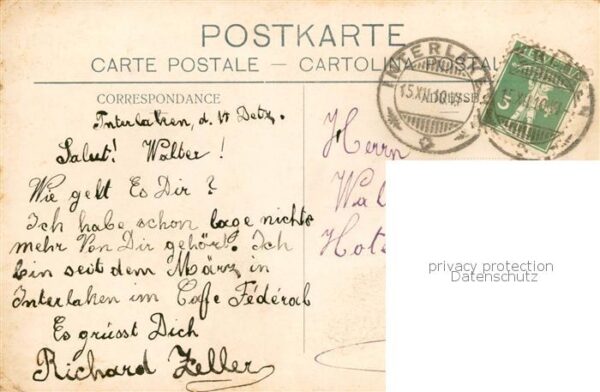 POSTKARTE
CARTE POSTALE — CARTOLINA POSTALE
CORRESPONDANCE
ADRESSE
INTERLAKEN
15.XII.10.
5
Interlaken, d. 14 Detz.
Salut! Walter!
Wie gelt Es Dir?
Ich habe schon lage nichts
mehr Von Dir gehört. Ich
bin seit dem März in
Interlaken im Cafe Fédéral
Es grüsst Dich
Richard Zeller
Herrn
Wal
Hote
privacy protection
Datenschutz